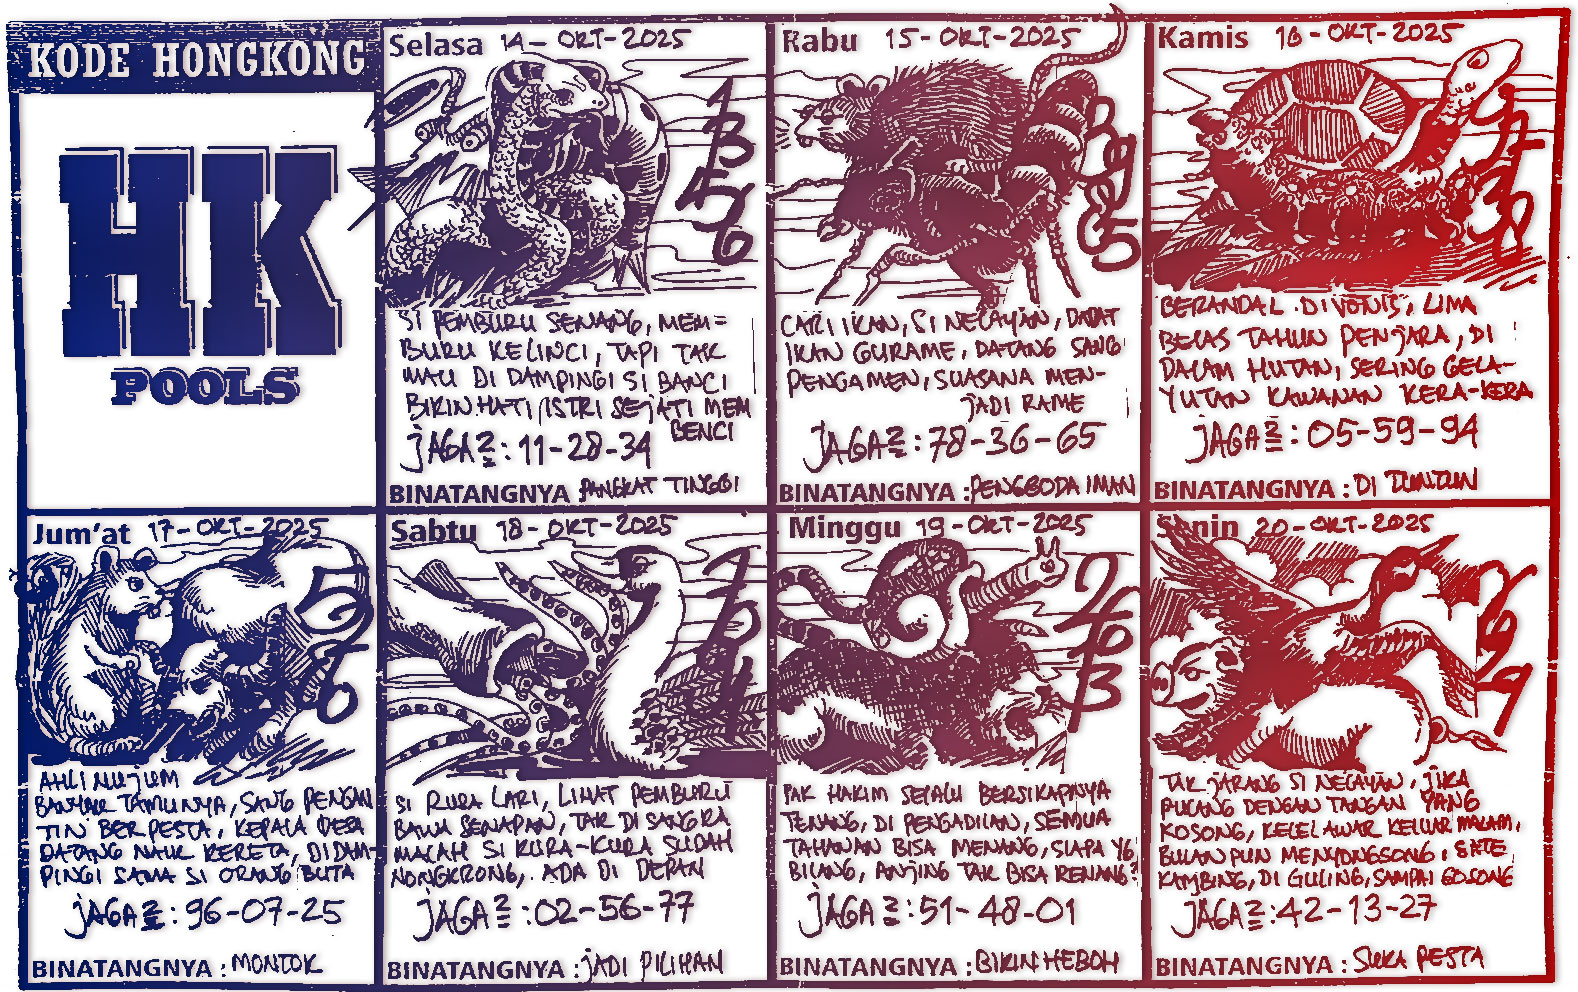 KODE HONGKONG
HK
POOLS
Selasa 14-OKT-2025
SI PEMBURU SENANG, MEM=
BURU KELINCI, TAPI TAK
MAU DI DAMPINGI SI BANCI
BIKIN HATI ISTRI SEJATI MEM
BENCI
JAGA2 : 11-28-34
BINATANGNYA PANGKAT TINGGI
Rabu 15-OKT-2025
CARI IKAN, SI NELAYAN, DAPAT
IKAN GURAME, DATANG SANG
PENGAMEN, SUASANA MEN-
JADI RAME
JAGA2 : 78-36-65
BINATANGNYA : PENGGODA IMAN
Kamis 16-OKT-2025
BERANDAL DIVONIS, LIMA
BELAS TAHUN PENJARA, DI
DALAM HUTAN, SERING GELA-
YUTAN KAWANAN KERA-KERA
JAGA2 : 05-59-94
BINATANGNYA : DI TUNTUN
Jum'at 17-OKT-2025
AHLI NUJUM
BANYAK TAMUNYA, SANG PENGAN
TIN BERPESTA, KEPALA DESA
DATANG NAIK KERETA, DIDAM-
PINGI SAMA SI ORANG BUTA
JAGA2 : 96-07-25
BINATANGNYA : MONTOK
Sabtu 18-OKT-2025
SI RUSA LARI, LIHAT PEMBURU
BAWA SENAPAN, TAK DI SANGKA
MALAH SI KURA-KURA SUDAH
NONGKRONG, ADA DI DEPAN
JAGA2 : 02-56-77
BINATANGNYA : JADI PILIHAN
Minggu 19-OKT-2025
PAK HAKIM SELALU BERSIKAPNYA
TENANG, DI PENGADILAN, SEMUA
TAHANAN BISA MENANG, SIAPA YG
BILANG, ANJING TAK BISA RENANG?
JAGA2 : 51-48-01
BINATANGNYA : BIKIN HEBOH
Senin 20-OKT-2025
TAK JARANG SI NELAYAN, JIKA
PULANG DENGAN TANGAN YANG
KOSONG, KELELAWAR KELUAR MALAM,
BULAN PUN MENYONGSONG, SATE
KAMBING, DI GULING, SAMPAI GOSONG
JAGA2 : 42-13-27
BINATANGNYA : SUKA PESTA